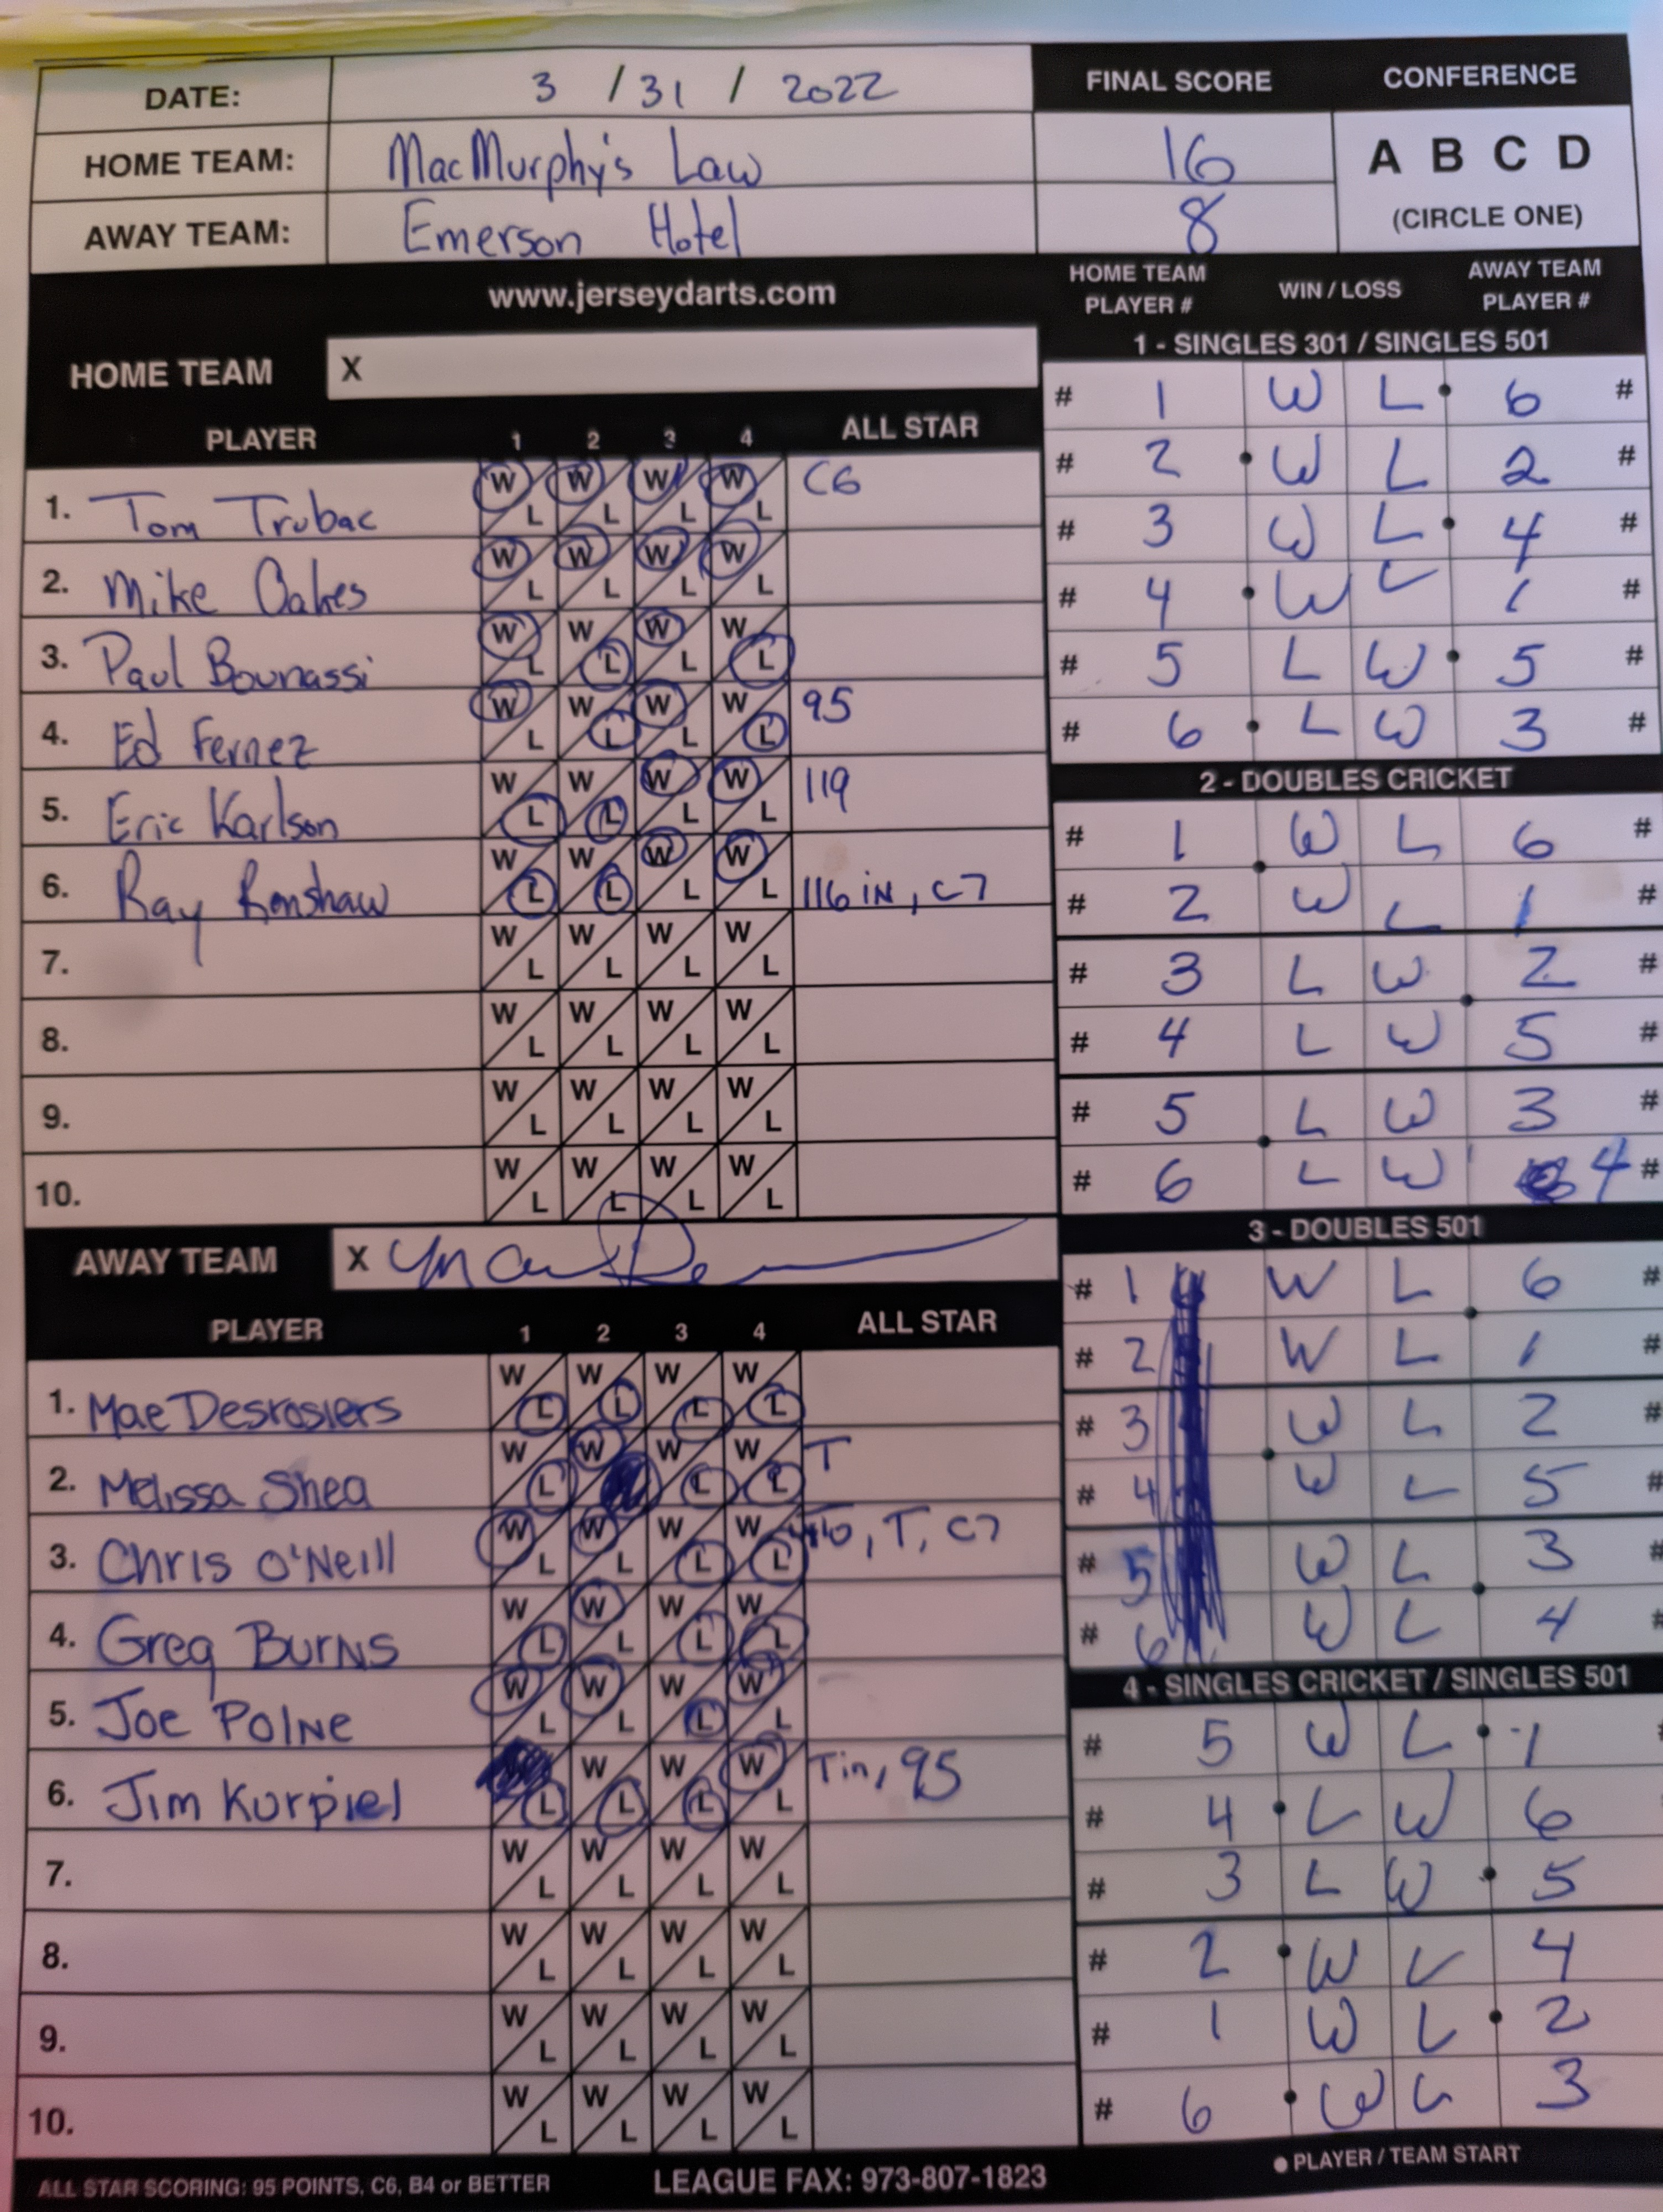 DATE: 3 / 31 / 2022
FINAL SCORE CONFERENCE
HOME TEAM: MacMurphy's Law 16
A B C D
AWAY TEAM: Emerson Hotel 8
(CIRCLE ONE)
www.jerseydarts.com
HOME TEAM X
PLAYER 1 2 3 4 ALL STAR
1. Tom Trubac W L W L W L W L C6
2. Mike Oakes W L W L W L W L
3. Paul Bounassi W L W L W L W L
4. Ed Fernez W L W L W L W L 95
5. Eric Karlson W L W L W L W L 119
6. Ray Renshaw W L W L W L W L 116 IN, C7
7. W L W L W L W L
8. W L W L W L W L
9. W L W L W L W L
10. W L W L W L W L
AWAY TEAM X
PLAYER 1 2 3 4 ALL STAR
1. Mae Desrosiers W L W L W L W L
2. Melissa Shea W L W W L W L T
3. Chris O'Neill W L W L W L W L , T, C7
4. Greg Burns W L W L W L W L
5. Joe Polne W L W L W L W L
6. Jim Kurpiel L W L W L W L Tin, 95
7. W L W L W L W L
8. W L W L W L W L
9. W L W L W L W L
10. W L W L W L W L
ALL STAR SCORING: 95 POINTS, C6, B4 or BETTER
LEAGUE FAX: 973-807-1823
HOME TEAM PLAYER # WIN / LOSS AWAY TEAM PLAYER #
1 - SINGLES 301 / SINGLES 501
# 1 W L 6 #
# 2 W L 2 #
# 3 W L 4 #
# 4 W L 1 #
# 5 L W 5 #
# 6 L W 3 #
2 - DOUBLES CRICKET
# 1 W L 6 #
# 2 W L 1 #
# 3 L W 2 #
# 4 L W 5 #
# 5 L W 3 #
# 6 L W 4 #
3 - DOUBLES 501
# 1 W L 6 #
# 2 W L 1 #
# 3 W L 2 #
# 4 W L 5 #
# 5 W L 3 #
# 6 W L 4 #
4 - SINGLES CRICKET / SINGLES 501
# 5 W L 1 #
# 4 L W 6
# 3 L W 5
# 2 W L 4
# 1 W L 2
# 6 W L 3
PLAYER / TEAM START